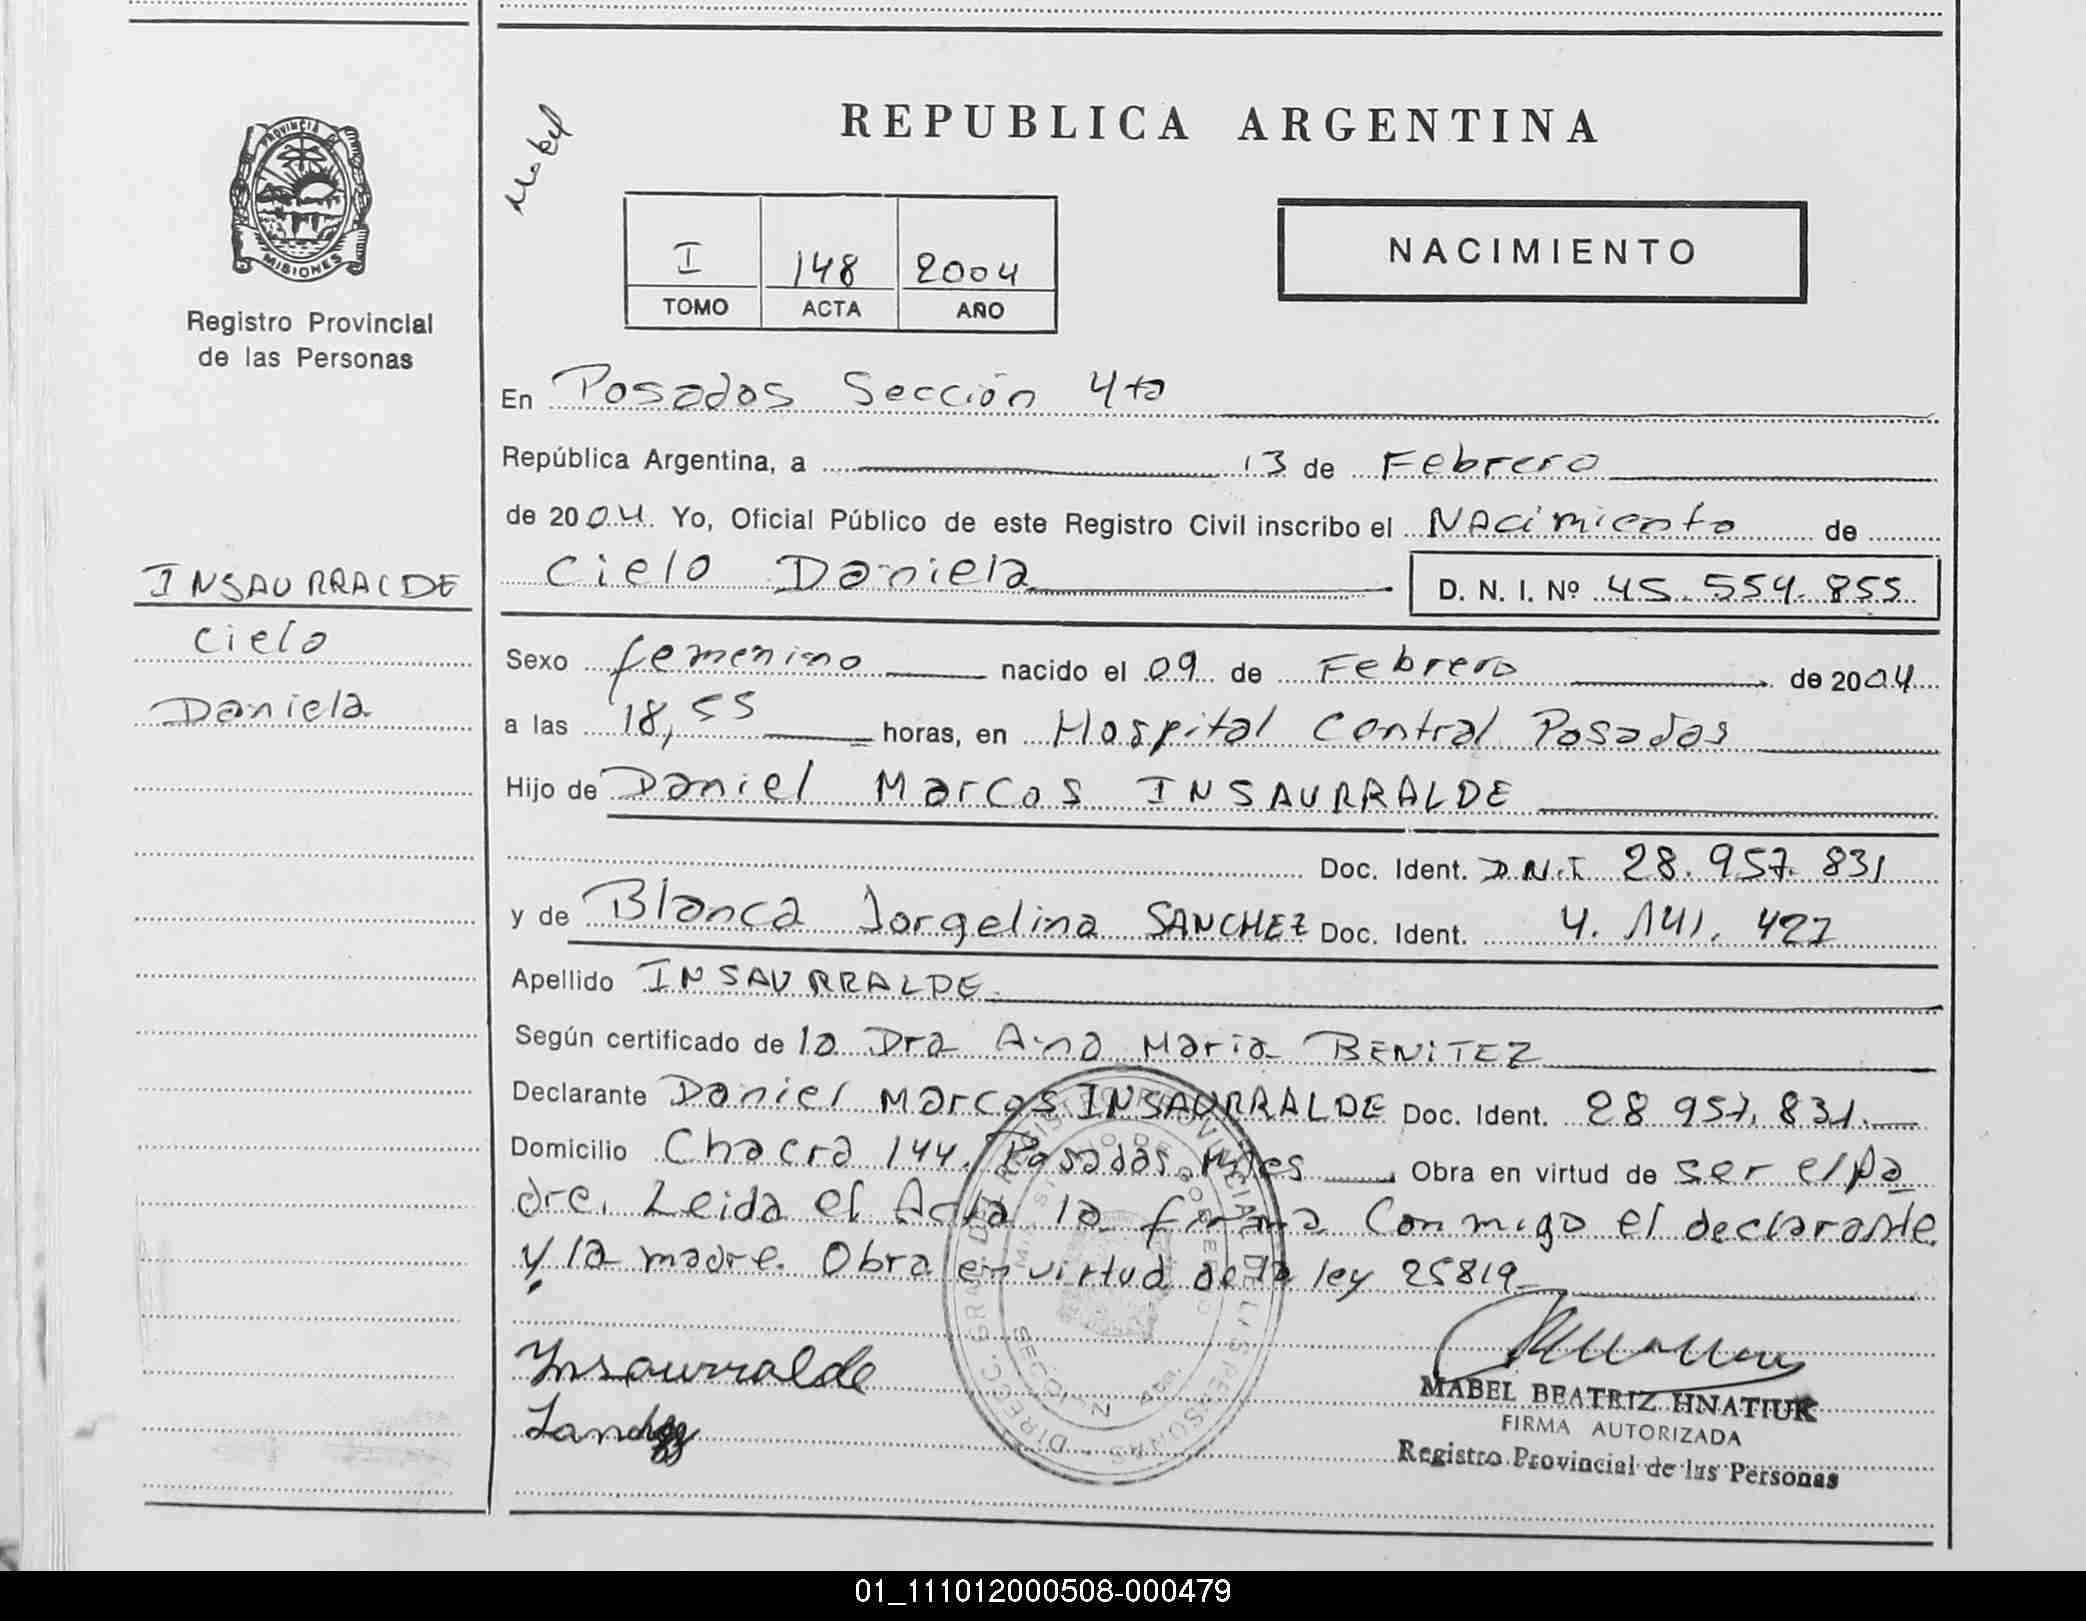 REPUBLICA ARGENTINA
Mabel
PROVINCIA DE
MISIONES
Registro Provincial
de las Personas
NACIMIENTO
I 148 2004
TOMO ACTA AÑO
En Posadas Sección 4ta
República Argentina, a 13 de Febrero
de 2004. Yo, Oficial Público de este Registro Civil inscribo el Nacimiento de
Cielo Daniela D. N. I. Nº 45.554.855
INSAURRALDE
Cielo
Daniela
Sexo femenino nacido el 09 de Febrero de 2004
a las 18,55 horas, en Hospital Central Posadas
Hijo de Daniel Marcos INSAURRALDE
Doc. Ident. D.N.I 28.957.831
y de Blanca Jorgelina SANCHEZ Doc. Ident. 4.141.427
Apellido INSAURRALDE
Según certificado de la Dra Ana Maria BENITEZ
Declarante Daniel Marcos INSAURRALDE Doc. Ident. 28 957.831.
Domicilio Chacra 144. Posadas Mnes Obra en virtud de ser el pa
dre. Leida el Acta la firma Conmigo el declarante
y la madre. Obra en virtud de la ley 25819
Insaurralde
MABEL BEATRIZ HNATIUK
FIRMA AUTORIZADA
Registro Provincial de las Personas
01_111012000508-000479